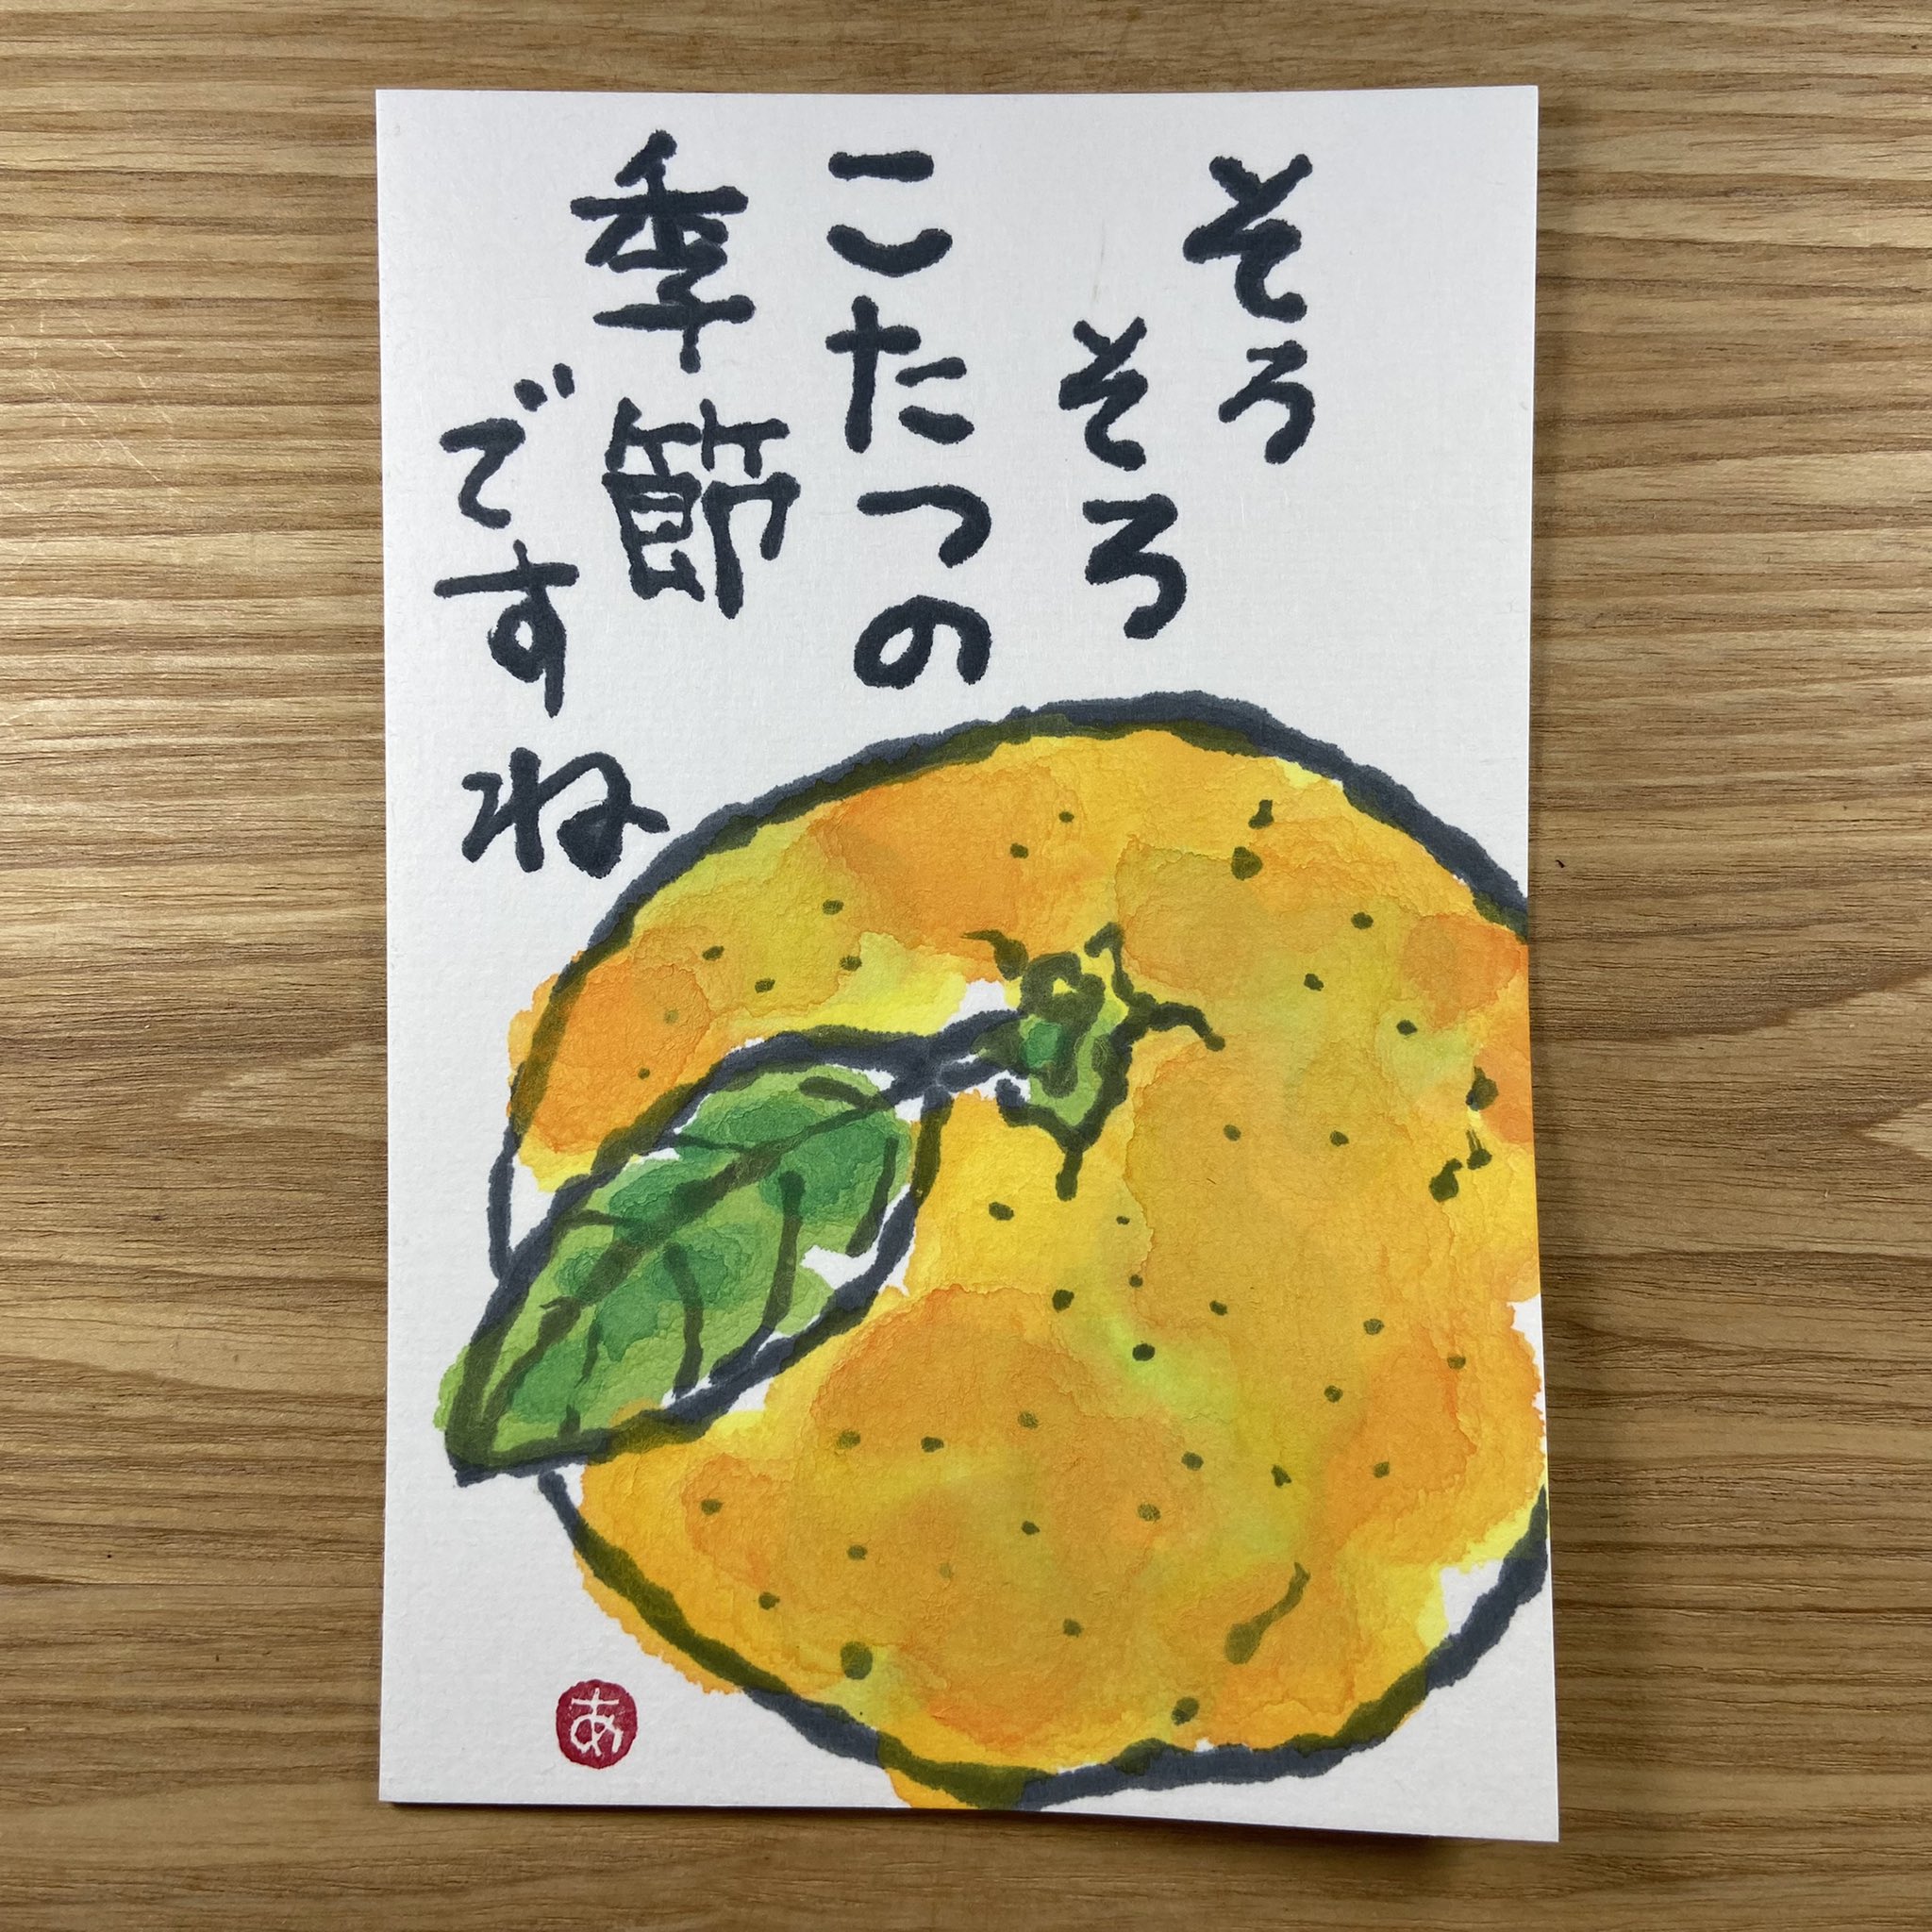 そろ
そろ
こたつの
季節
ですね
あ